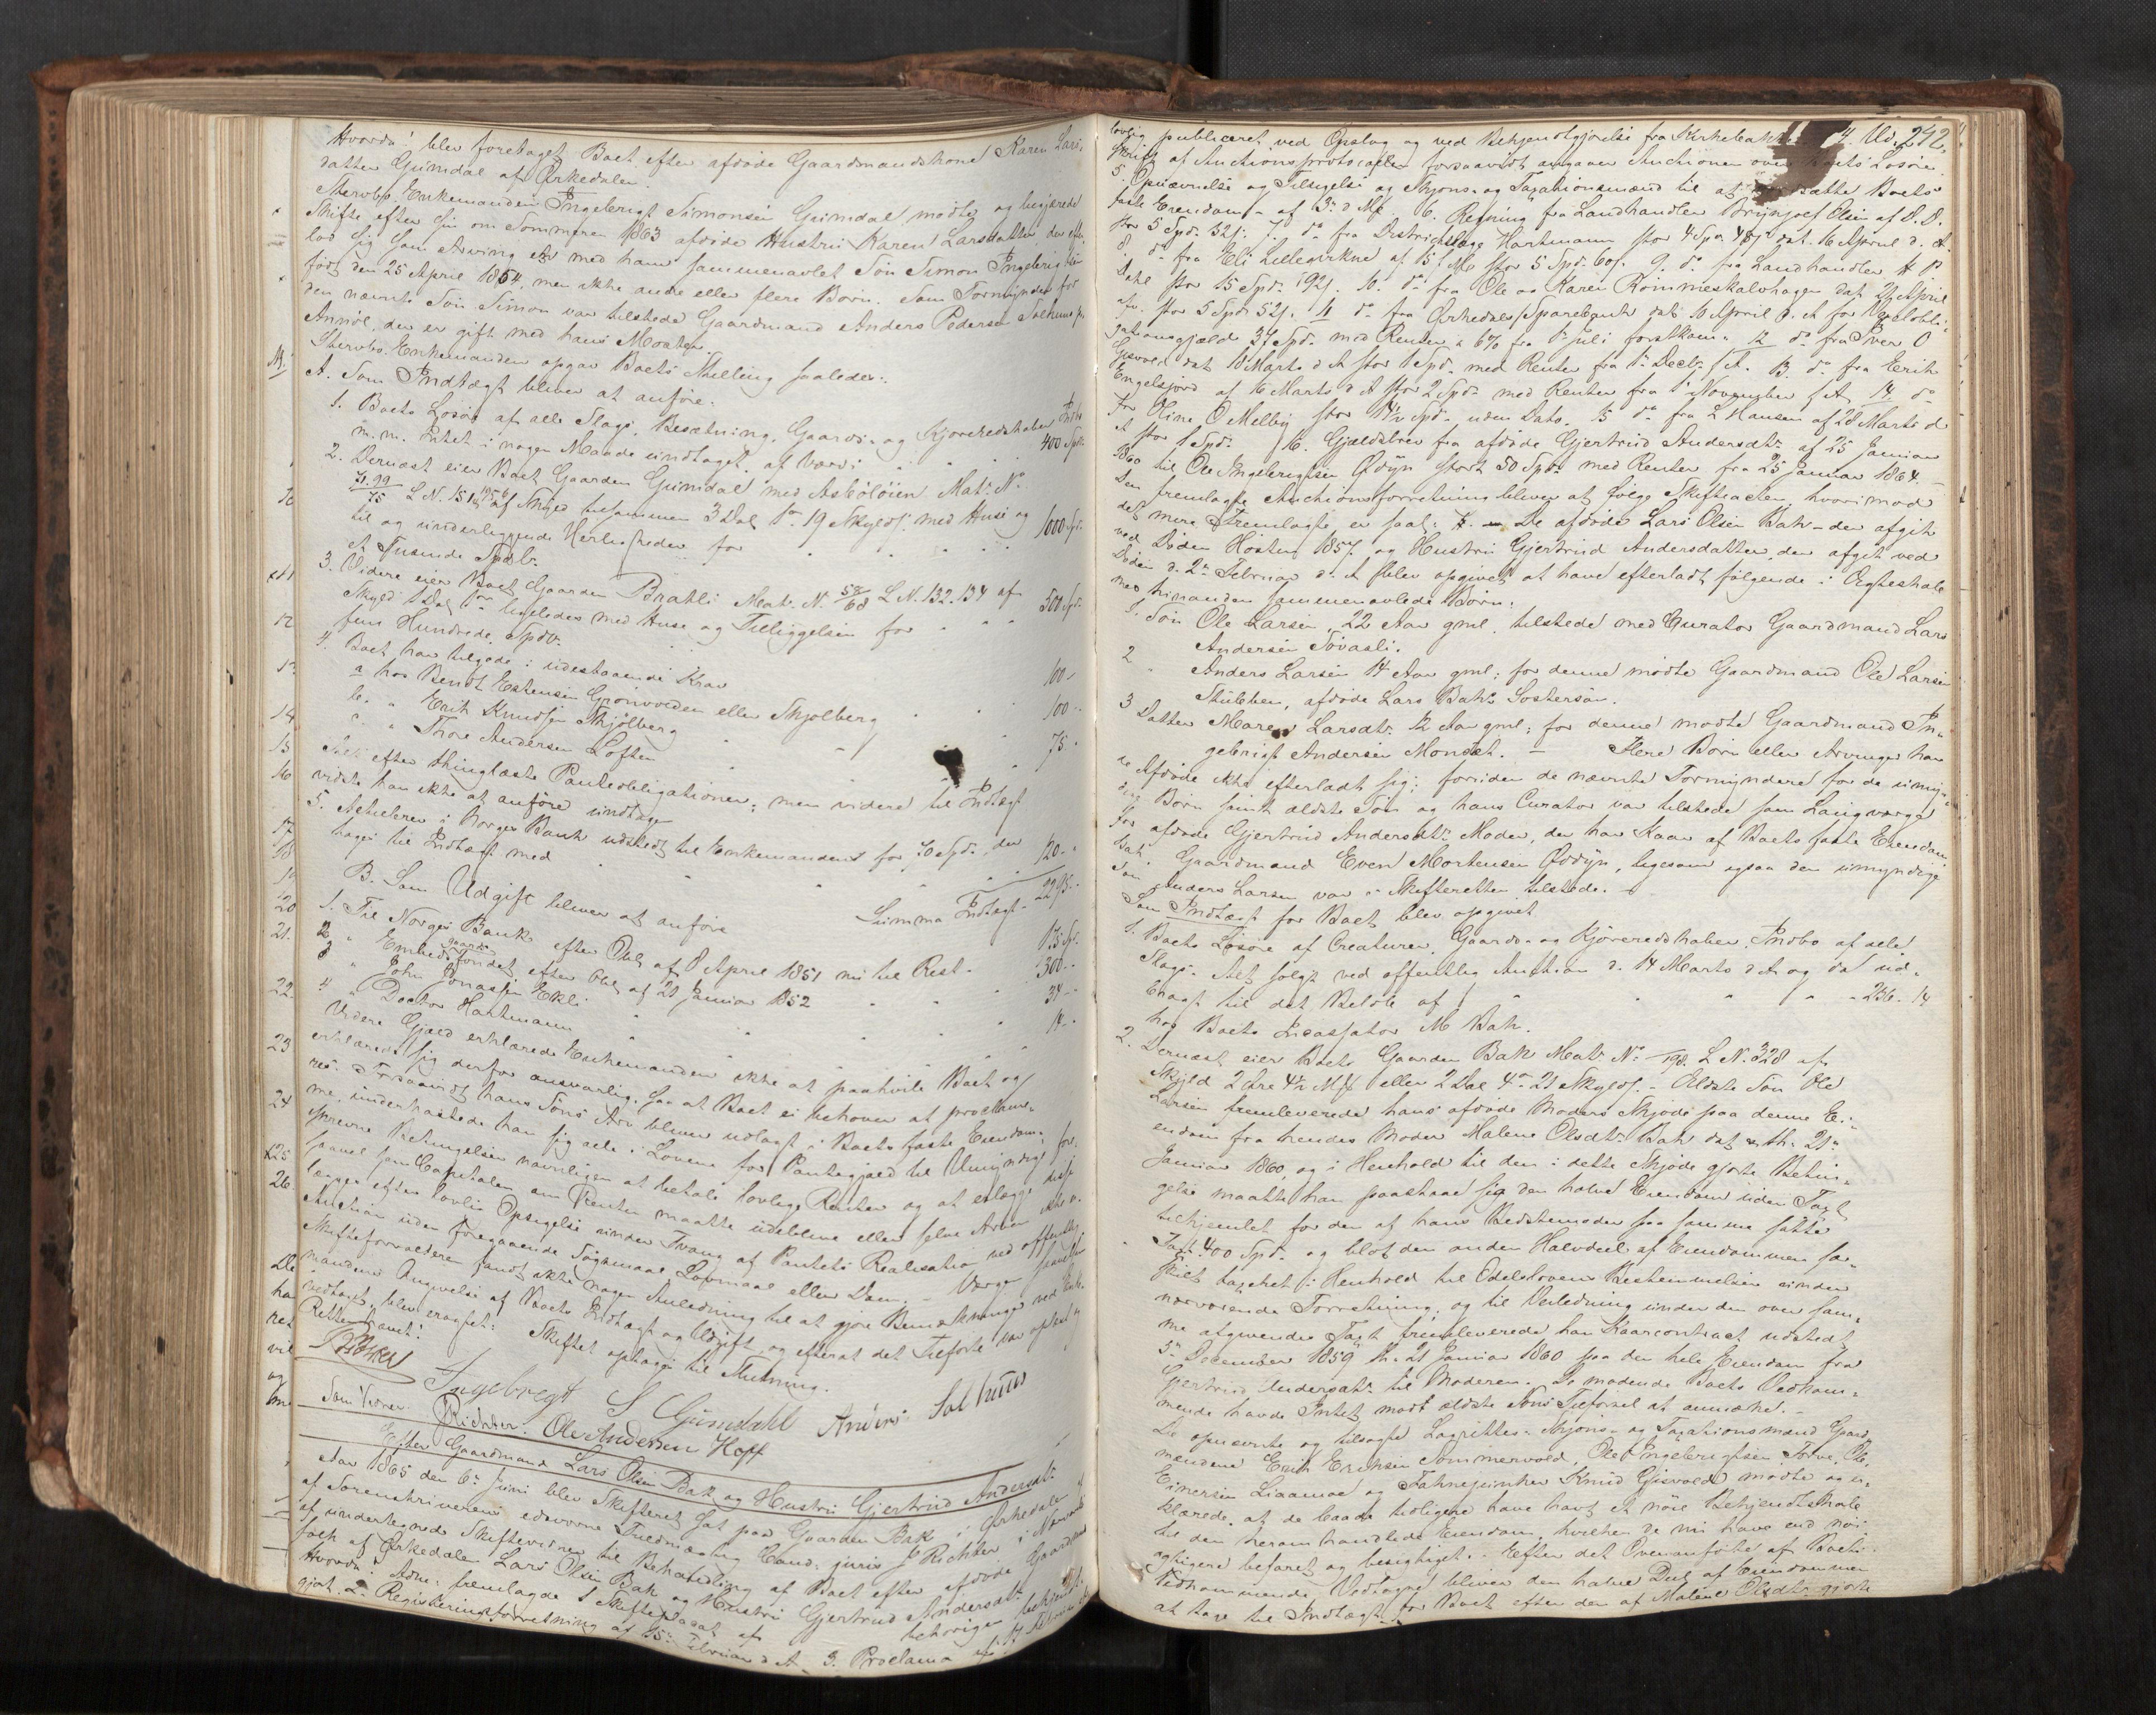 Hvorda! blev foretaget Boet efter afdøde Gaardmandskone Karen Lars-
datter Grimdal af Ørkedalen.
Stervbo Enkemanden Ingebrigt Simonsen Grimdal mødte og begjærede
Skifte efter sin om Sommeren 1863 afdøde Hustru Karen Larsdatter, der efter-
lod sig som Arving en med ham sammenavlet Søn Simon Ingebrigtsen
født den 25 April 1854, men ikke andre eller flere Børn. Som Formynder for
den nævnte Søn Simon var tilstede Gaardmand Anders Pedersen Solhuus
der er gift med hans Moster.
Stervbo Enkemanden opgav Boets Stilling saaledes:
A. Som Indtægt bliver at anføre:
1. Boets Løsøre af alle Slags, Besætning, Gaards- og Kjøreredskaber, Indbo
m. m. Intet i nogen Maade undtaget, af Værdi 400 Spd.
2. Dernæst eier Boet Gaarden Grimdal med Asbøløien Mat. No
71.99/75 L N. 151 af Skyld tilsammen 3 Dal 1 ort 19 Skylds. med Huse og
til og underliggende Herligheder for 1000 Spd.
et Tusinde Spdlr.
3. Videre eier Boet Gaarden Bratli Mat. N. 58/68 L N. 132. 134 af
Skyld 1 Dal 1 ort ligeledes med Huse og Tilliggelser for 500 Spd.
fem Hundrede Spdr.
4. Boet har tilgode i udestaaende Krav
a hos Bendt Estensen Grønvoiden eller Skjølberg 100 -
b. " Erik Knudsen Skjølberg 100 -
c. " Thore Andersen Loften 75 -
Alt efter thinglæste Panteobligationer; men videre til Indtægt
vidste han ikke at anføre undtagen
5. Actiebrev i Norges Bank udstedt til Enkemanden for 70 Spd., der
tages til Indtægt med 120 -
Summa Indtægt - 2295 -
B. Som Udgift bliver at anføre
1. Til Norges Bank efter Obl. af 8 April 1851 nu til Rest - 175 Spd.
2 " Embedsgaardsfondet efter Obl. af 21 Januar 1852 300 -
3 " John Jonassen Ekli 34 -
4 " Doctor Hartmann 14 -
Videre Gjæld erklærede Enkemanden ikke at paahvile Boet og
erklærede sig derfor ansvarlig, saa at Boet ei behøver at proclame-
res. Forsaavidt hans Søns Arv bliver udlagt i Boets faste Eiendom-
me, underkastede han sig alle i Lovene for Pantegjæld til Umyndige fore-
skrevne Betingelser navnligen at betale lovlige Renter og at erlægge disse
saavel som Capitalen om Renten maatte udeblive eller selve Arven ikke er-
lægges efter lovlig Opsigelse under Tvang af Pantets Realisation ved offentlig
Auction uden foregaaende Søgsmaal Lovmaal eller Dom. - Værger saavelsom
Skifteforvalteren fandt ikke nogen Anledning til at gjøre Bemærkninger ved Enke-
mandens Angivelse af Boets Indtægt og Udgift, og efterat det Tilførte var oplæst og
vedtaget, blev eragtet: Skiftet optages til Slutning.
Retten hævet!
Ingebregt S Grimdahl Anders Solhuus
Som Vidner: Richter. Ole Andersen Hoff
Efter Gaardmand Lars Olsen Bak og Hustru Gjertrud Andersdtr.
Aar 1865 den 6te Juni blev Skifteret sat paa Gaarden Bak i Ørkedalen
af Sorenskriverens edsvorne Fuldmægtig Cand. juris J Richter i Nærværelse
af undertegnede Skiftevidner til Behandling af Boet efter afdøde Gaardmand
folk af Ørkedalen Lars Olsen Bak og Hustru Gjertrud Andersdtr.
Hvorda! Adm. fremlagde 1 Skifteplacat af behørigen bekjendt-
gjort. 2. Registreringsforretning af 15de Februar d. A. 3. Proclama af 17 Februar
lovlig publiceret ved Opslag og ved Bekjendtgjørelse fra Kirkebakken 4. Ud- 242.
skrift af Auctionsprotocollen forsaavidt angaaer Auctionen over Boets Løsøre.
5. Opnævnelse og Tilsigelse og Skjøns- og Taxationsmænd til at Boets
faste Eiendom - af 3de d. M. 6. Regning fra Landhandler Brynjolf Olsen af D. D.
stor 5 Spd. 32 s. 7 do fra Districtslæge Hartmann stor 4 Spd. 48 s. dat. 16 April d. A.
8. do fra Eli Lillegirkne af 15 f. M. stor 5 Spd. 60 s. 9. do fra Landhandler H P
Dahl stor 15 Spd. 92 s. 10. do fra Ole og Karen Rommeskalvhagen dat 21 April
stor 5 Spd. 52 s. 11 do fra Ørkedals Sparebank dat. 10 April d. A for Vexelobli-
gationsgjæld 37 Spd. med Renter a 6% fra 1 Juli førstkom. 12 do fra Iver O
Gisvold dat 18 Marts d. A stor 1 Spd. med Renter fra 1 Decbr. f. A. 13. do fra Erik
Engelsjord af 16 Marts d. A stor 2 Spd. med Renter fra 1 November f. A 14 do
fra Kine O Melby stor 14½ Spd. uden Dato. 15 do fra L Hansen af 28 Marts d
A stor 1 Spd. 16. Gjældsbrev fra afdøde Gjertrud Andersdtr. af 25 Januar
1860 til Ole Ingebrigtsen Ødýn stort 50 Spd. med Renter fra 25 Januar 1864. -
Den fremlagte Auctionsforretning bliver at følge Skifteacten, hvorimod
det mere Fremlagte er saal: De afdøde Lars Olsen Bak - der afgik
ved Døden Høsten 1857 og Hustru Gjertrud Andersdatter der afgik ved
Døden d. 2de Februar d. A blev opgivet at have efterladt følgende i Ægteskab
med hinanden sammenavlede Børn:
1. Søn Ole Larsen, 22 Aar gml. tilstede med Curator Gaardmand Lars
Andersen Sovasli.
2 " Anders Larsen 14 Aar gml; for denne mødte Gaardmand Ole Larsen
Stubben, afdøde Lars Baks Søstersøn.
3 Datter Maren Larsdtr. 12 Aar gml; for denne mødte Gaardmand In-
gebrigt Andersen Monset. - Flere Børn eller Arvinger har
de Afdøde ikke efterladt sig; foruden de nævnte Formyndere for de umyn-
dige Børn samt ældste Søn og hans Curator var tilstede som Laugværge
for afdøde Gjertrud Andersdtr. Moder, der har Kaar af Boets faste Eiendom
Bak, Gaardmand Even Mortensen Ødýn, ligesom ogsaa den umyndige
Søn Anders Larsen var i Skifteretten tilstede. -
Som Indtægt for Boet blev opgivet
1. Boets Løsøre af Creaturer, Gaards- og Kjøreredskaber, Indbo af alle
Slags. Alt solgt ved offentlig Auction d. 14 Marts d. A og da ud-
bragt til det Beløb af 236. 14
hos Boets Incassator M Bak.
2. Dernæst eier Boet Gaarden Bak Mat. No 198. L N. 328 af
Skyld 2 Øre 4½ Mk eller 2 Dal 4 ort 21 Skylds. - Ældste Søn Ole
Larsen fremleverede hans afdøde Moders Skjøde paa denne Ei-
endom fra hendes Moder Malene Olsdtr. Bak dat. & th. 21de
Januar 1860, og i Henhold til den i dette Skjøde gjorte Betin-
gelse maatte han paastaae sig den halve Eiendom uden Taxt
tilhjemlet for den af hans Bedstemoder paa samme satte
Taxt 400 Spd. og blot den anden Halvdeel af Eiendommen sær-
skilt taxeret i Henhold til Odelslovens Bestemmelser under
nærværende Forretning, og til Veiledning under den over sam-
me afgivende Taxt fremleverede han Kaarcontract udstedt
5te December 1859 th. 21 Januar 1860 paa den hele Eiendom fra
Gjertrud Andersdtr. til Moderen. De mødende Boets Vedkom-
mende havde Intet mod ældste Søns Tilførsel at anmærke. -
De opnævnte og tilsagte Lagrettes- Skjøns- og Taxationsmænd Gaard-
mændene Erik Eriksen Sommervold, Ole Ingebrigtsen Sorve, Ole
Einersen Liaamoe og Fahnejunker Knud Gjsvold mødte og er-
klærede, at de baade tidligere have havt et nøie Bekjendtskab
til den heromhandlede Eiendom, hvilken de nu have end nøi-
agtigere befaret og besigtiget. - Efter det Ovenanførte af Boets
Vedkommende Vedtagne bliver den halve Deel af Eiendommen
at tage til Indtægt for Boet efter den af Malene Olsdtr. gjorte